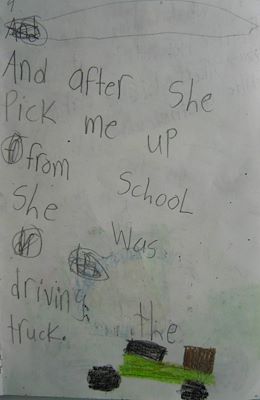 And after She
Pick me up
from School
She was
driving the
truck.